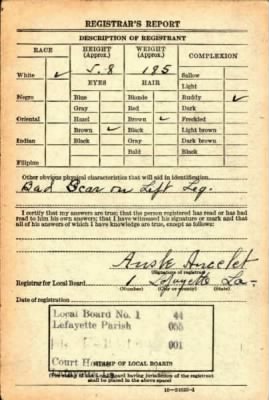 REGISTRAR'S REPORT
DESCRIPTION OF REGISTRANT
RACE HEIGHT (Approx.) WEIGHT (Approx.) COMPLEXION
White ✓ 5.8 195 Sallow
EYES HAIR Light
Negro Blue Blonde Ruddy ✓
Gray Red Dark
Oriental Hazel Brown ✓ Freckled
Brown ✓ Black Light brown
Indian Black Gray Dark brown
Bald Black
Filipino
Other obvious physical characteristics that will aid in identification
Bad Scar on Left Leg.
I certify that my answers are true; that the person registered has read or has had
read to him his own answers; that I have witnessed his signature or mark and that
all of his answers of which I have knowledge are true, except as follows:
Ancelet
(Signature of registrar)
Registrar for Local Board 1 Lafayette La.
(Number) (City or county) (State)
Date of registration
Local Board No. 1 44
Lafayette Parish 055
001
Court House
(STAMP OF LOCAL BOARD)
(The stamp of the Local Board having jurisdiction of the registrant
shall be placed in the above space)